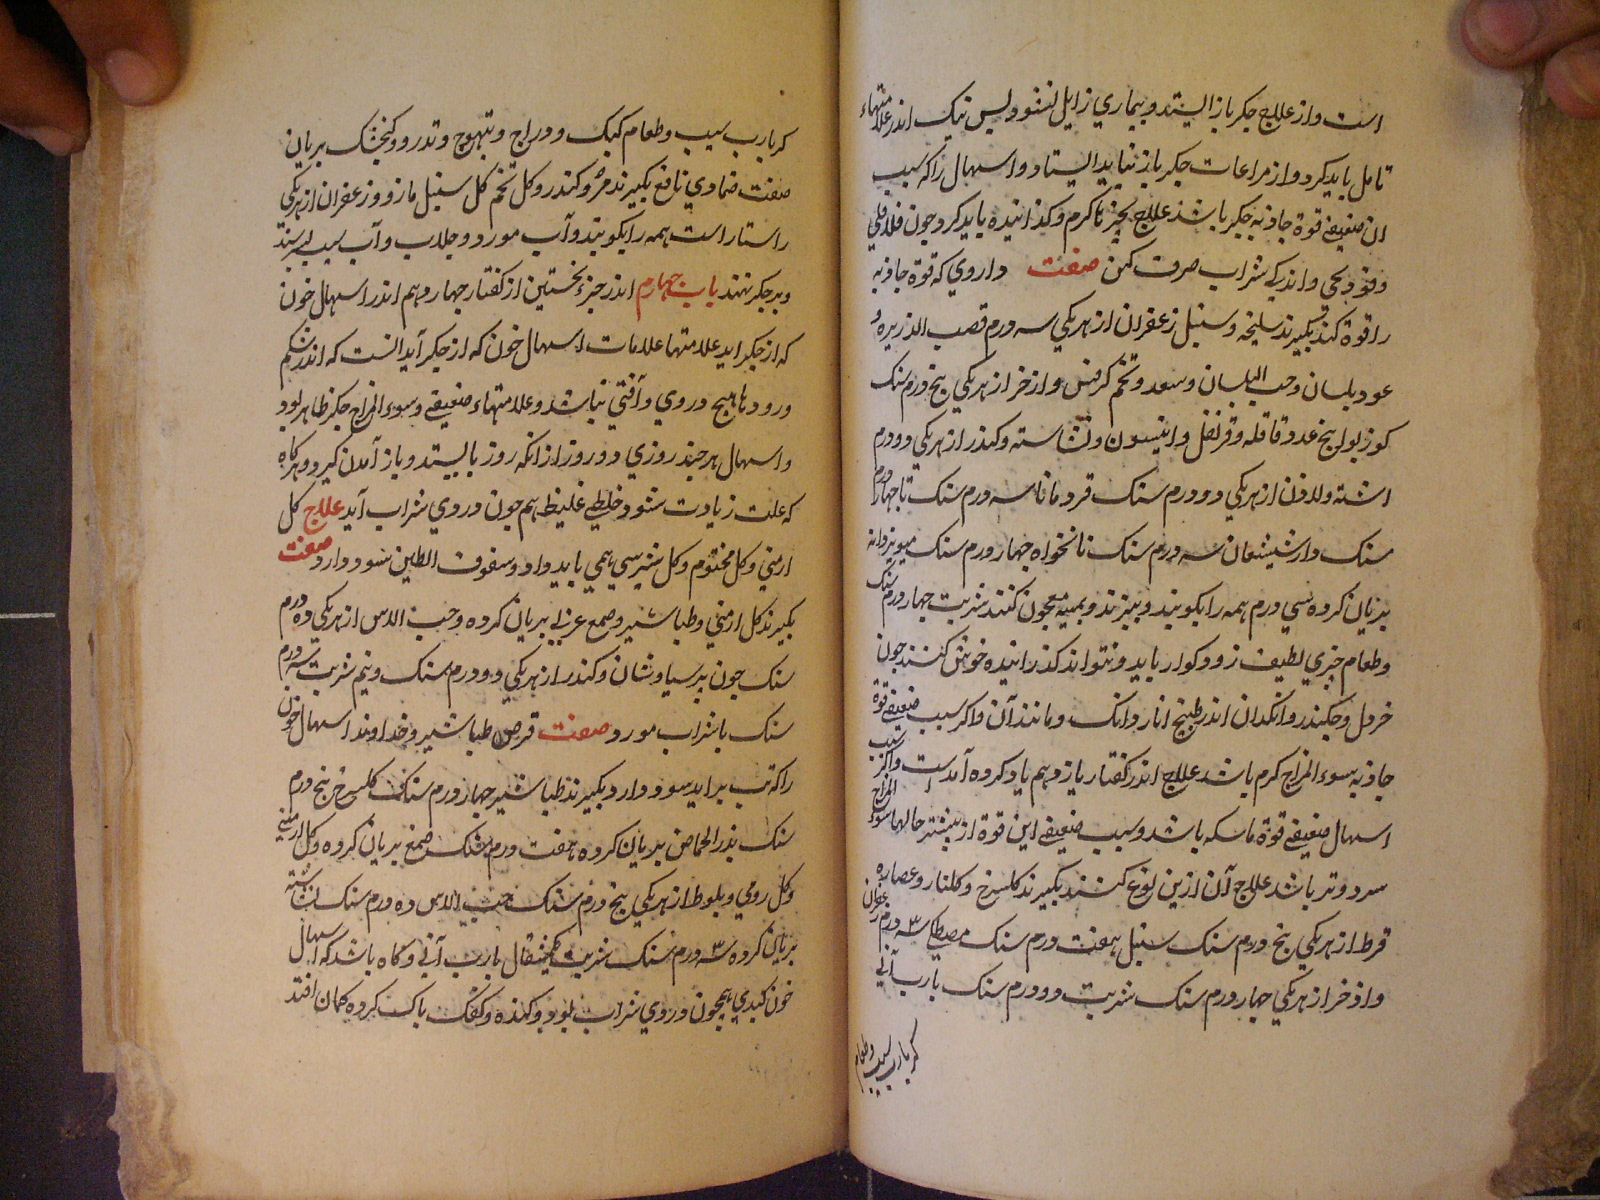 است و از علاج جکر باز ایستد و بیماری زایل نشود و لیس نیک اندر علامتهاء
تامل باید کرد و از مراعات جکر باز نباید ایستاد و اسهال را که سبب
ان ضعیفی قوة جاذبه جکر باشد علاج بچیزهاء کرم و کذاننده باید کرد چون فلافلی
و فودنجی و اندکی شراب صرف کهن صفت داروی که قوة جاذبه
را قوة کند بکیرند سلیخه و سنبل زعفران از هریکی سه درم قصب الذریره و
عود بلسان و حب البلسان و سعد و تخم کرفس و اذخر از هریکی پنج درم سنک
کوزبوا پنج عدد قاقله و قرنفل و انیسون و نشاسته و کندر از هریکی دو درم
اشنه و لادن از هریکی دو درم سنک قردمانا سه درم سنک تا چهار درم
سنک دارشیشعان سه درم سنک نانخواه چهار درم سنک میویز دانه
بریان کرده سی درم همه را بکوبند و ببیزند و بمیبه معجون کنند شربت چهار درم سنک
و طعام چیزی لطیف زود کوار باید و نتواند کذراننده خوش کنند چون
خردل و چکندر و انکدان اندر طبیخ انار دانک و مانند آن و اکر سبب ضعیفی قوة
جاذبه سوء المزاج کرم باشد علاج اندر کفتار یازدهم یاد کرده آمدست و اکر سبب
اسهال ضعیفی قوة ماسکه باشد و سبب ضعیفی این قوة از بیشتر حالها سوء المزاج
سرد و تر باشد علاج آن ازین نوع کنند بکیرند کلسرخ و کلنار و عصاره
قرط از هریکی پنج درم سنک سنبل هفت درم سنک مصطکی ۳ سه درم زعفران
و اذخر از هریکی چهار درم سنک شربت دو درم سنک بارب آبی
کر بارب سیب و طعام
کر بارب سیب و طعام کبک و دراج و تیهوج و تدرو و کنجشک بریان
صفت ضمادی نافع بکیرند مر و کندر و کل تخم کل سنبل مازو و زعفران از هریکی
راستا راست همه را بکوبند و آب مورد و جلاب و آب سیب بسرشند
و بر جکر نهند باب چهارم اندر جزء نخستین از کفتار چهاردهم اندر اسهال خون
که از جکر اید علامتها علامات اسهال خون که از جکر آید انست که اندر شکم
و رودها هیچ دردی و آفتی نباشد و علامتهاء ضعیفی و سوء المزاج جکر ظاهر بود
و اسهال هر چند روزی دو روز از انکه روز بایستد و باز آمدن کیرد و هرکاه
که علت زیادت شود خلطی غلیظ هم چون دردی شراب آید علاج کل
ارمنی و کل مختوم و کل شیرسی همی باید داد و سفوف الطین سود دارد صفت
بکیرند کل ارمنی و طباشیر و صمغ عربی بریان کرده و حب الاس از هریکی ده درم
سنک خون پرسیاوشان و کندر از هریکی دو درم سنک و نیم شربت سه درم
سنک با شراب مورد صفت قرص طباشیر و خداوند اسهال خون
را که تب براید سود دارد بکیرند طباشیر چهار درم سنک کلسرخ پنج درم
سنک بذر الحماض بریان کرده هفت درم سنک صمغ بریان کرده و کل ارمنی
و کل رومی و بلوط از هریکی پنج درم سنک حب الاس ده درم سنک نشاسته
بریان کرده ۳ سه درم سنک شربت یکمثقال بارب آبی و کاه باشد که اسهال
خون کبدی همچون دردی شراب بود و کنده و کفک باک کرده کمان افتد